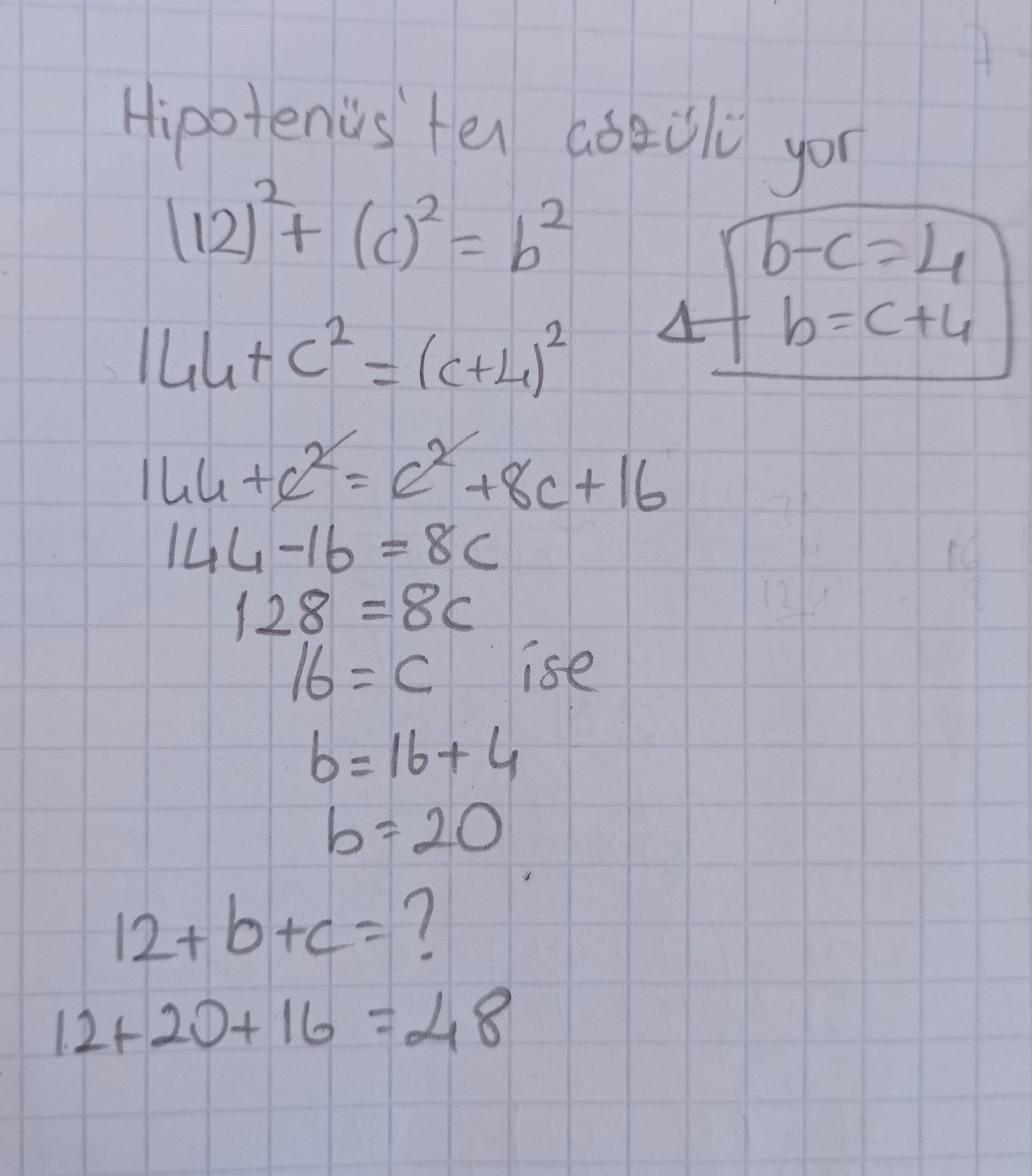 Hipotenüs'ten çözülüyor
(12)² + (c)² = b²
b-c=4
b=c+4
144+c² = (c+4)²
144+c² = c² +8c+16
144-16 = 8c
128 = 8c
16 = c ise
b=16+4
b=20
12+b+c=?
12+20+16 =48